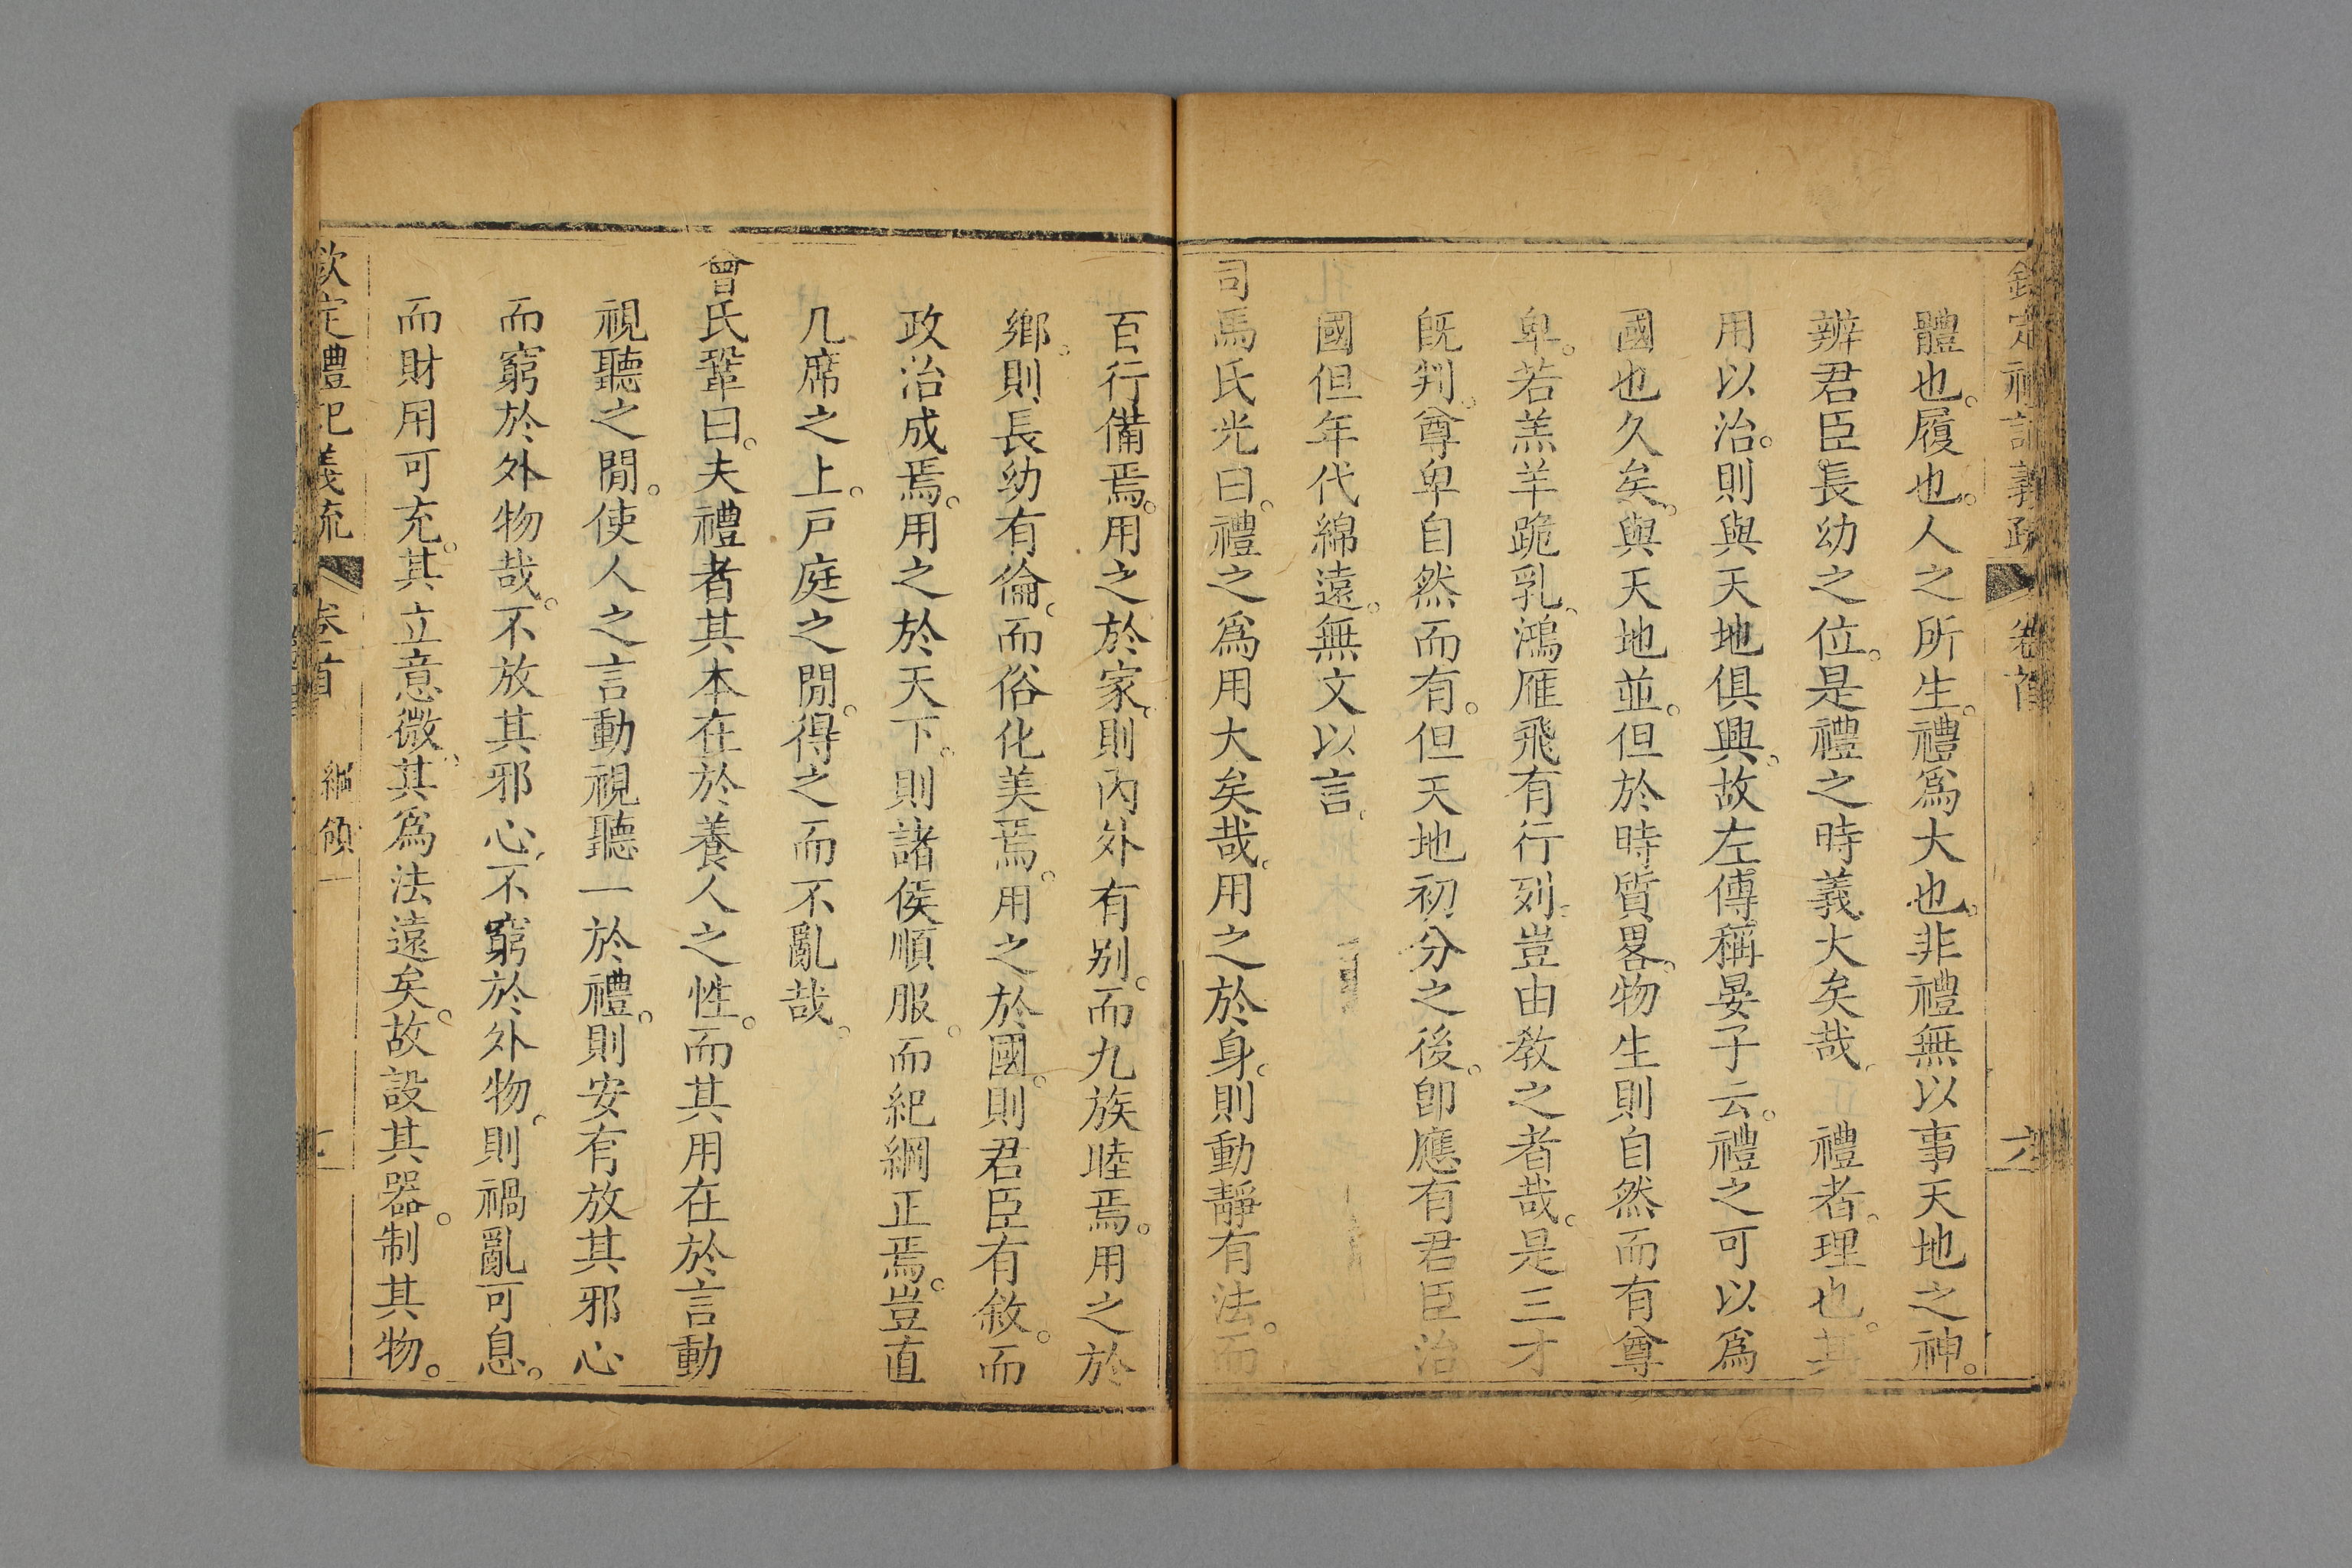 欽定禮記義疏 卷首 六
體也。履也。人之所生。禮爲大也。非禮無以事天地之神。
辨君臣長幼之位。是禮之時義大矣哉。禮者。理也。其
用以治。則與天地俱興。故左傳稱晏子云。禮之可以爲
國也久矣。與天地並。但於時質畧。物生則自然而有尊
卑。若羔羊跪乳。鴻雁飛有行列。豈由敎之者哉。是三才
旣判。尊卑自然而有。但天地初分之後。卽應有君臣治
國但年代綿遠。無文以言。
司馬氏光曰。禮之爲用大矣哉。用之於身。則動靜有法。而
百行備焉。用之於家。則內外有别。而九族睦焉。用之於
鄉。則長幼有倫。而俗化美焉。用之於國。則君臣有敘。而
政治成焉。用之於天下。則諸侯順服。而紀綱正焉。豈直
几席之上。戸庭之閒。得之而不亂哉。
曾氏鞏曰。夫禮者其本在於養人之性。而其用在於言動
視聽之閒。使人之言動視聽一於禮。則安有放其邪心
而窮於外物哉。不放其邪心。不窮於外物。則禍亂可息。
而財用可充。其立意微。其爲法遠矣。故設其器。制其物。
欽定禮記義疏 卷首 綱領一